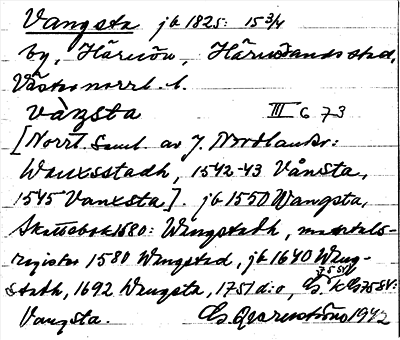 Vangsta jb 1825: 15 3/4
by, Härnön, Härnösands stad,
Västernorrl. l.
vàŋsta III G 73
[Norrl. saml. av J. Nordlander:
Wauxsstadh, 1542-43 Vånsta,
1545 Vanxsta]. jb 1550 Wangsta,
Skattebok 1580: Wengstadh, mantals-
register 1580 Wengstad, jb 1640 Weng-
stadh, 1692 Wengsta, 1751 d:o, GS k G 75 SV:
Vangsta. 1942